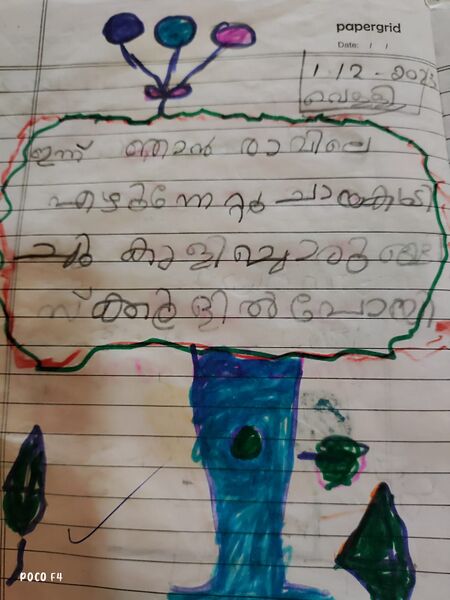 papergrid
Date: / /
1 12 - 2023
വെള്ളി
ഇന്ന് ഞാൻ രാവിലെ
എഴുന്നേറ്റു ചായകുടി
ച്ചു കുളിച്ചൊരുങ്ങി
സ്ക്കൂളിൽ പോയി
POCO F4